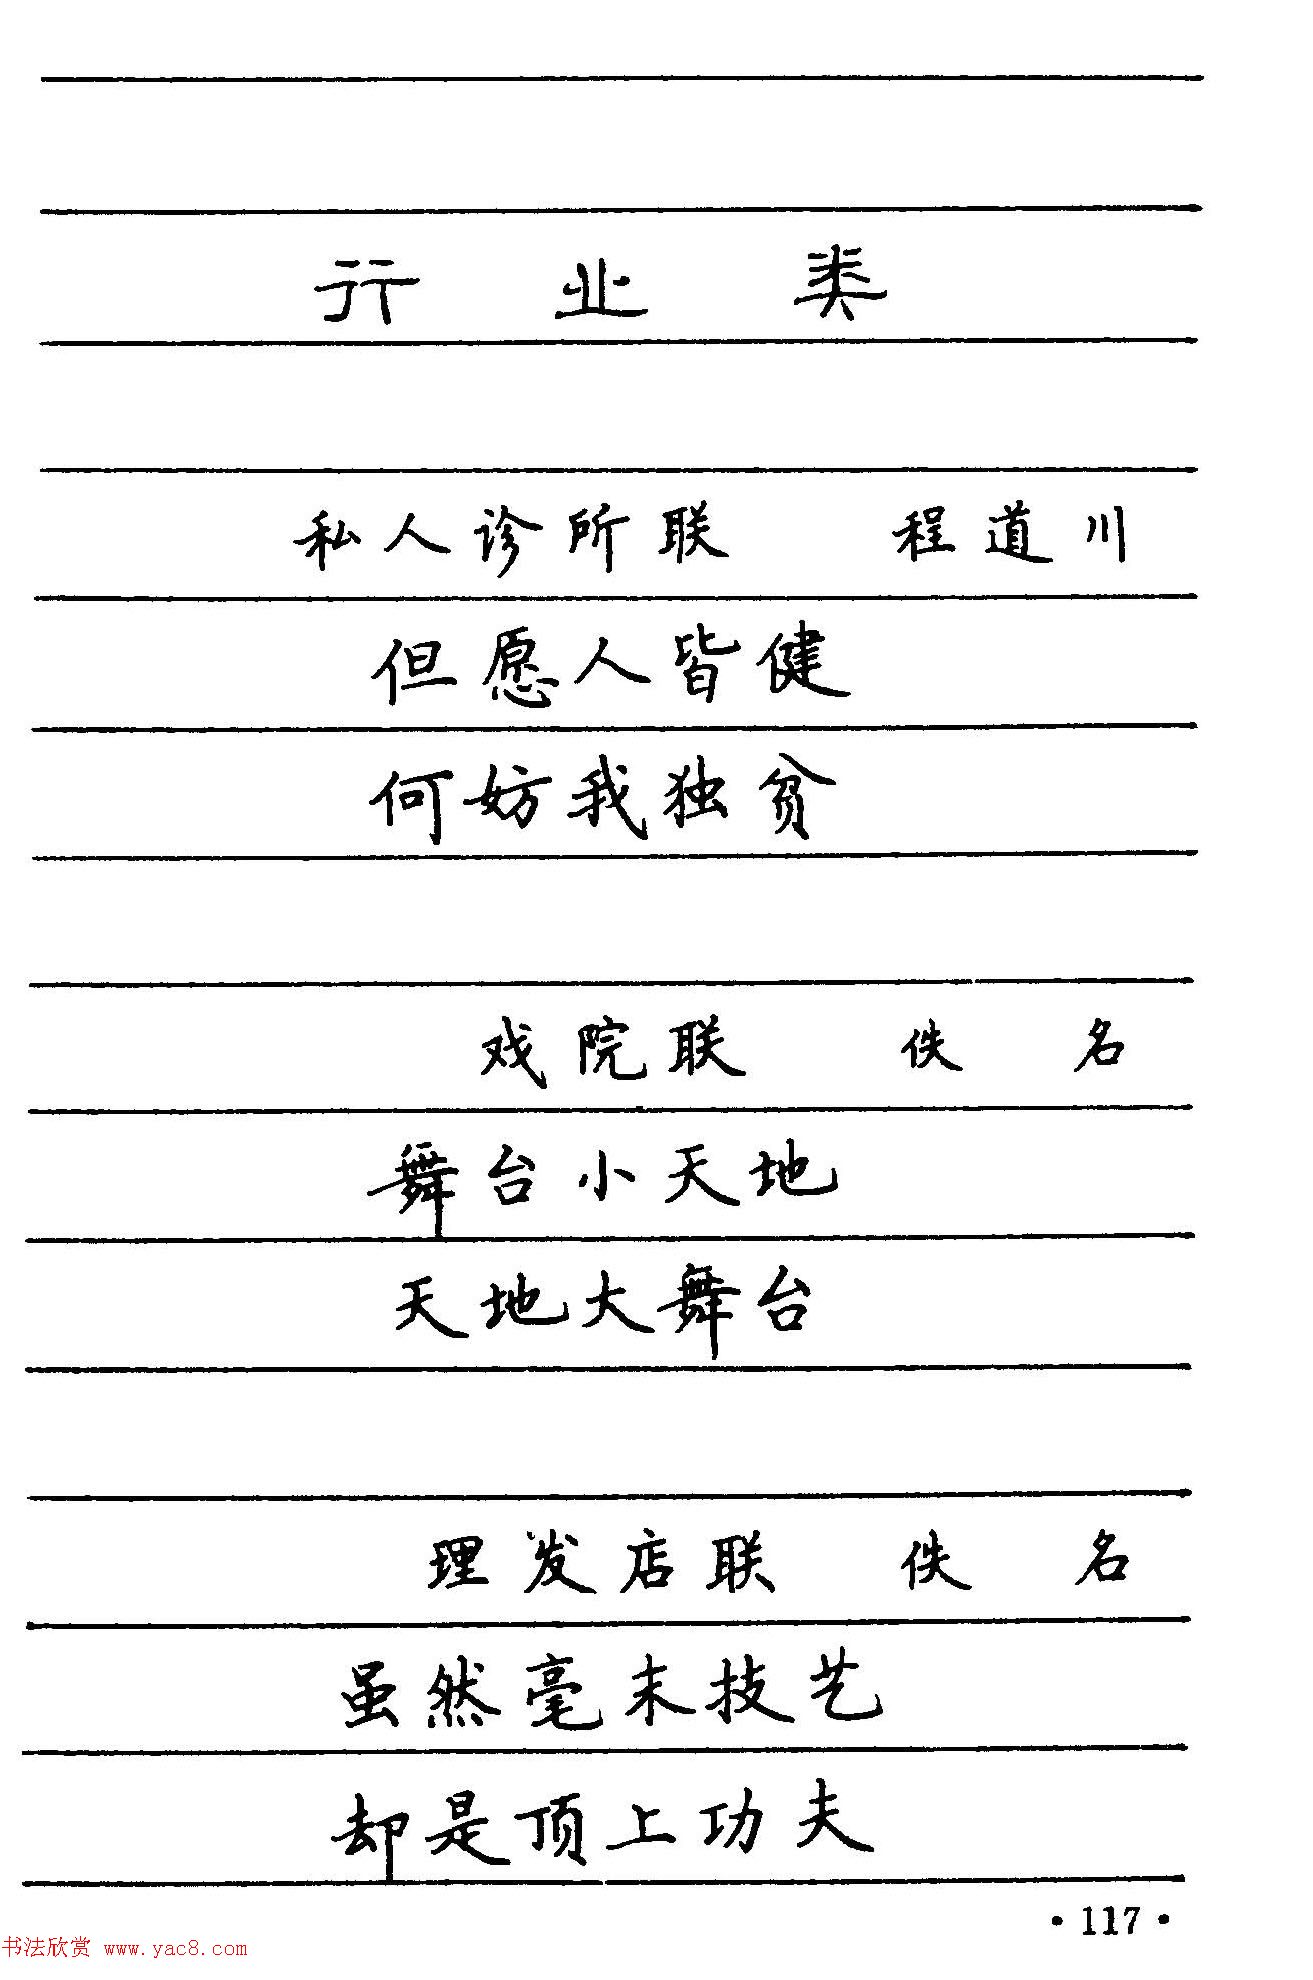 行业类
私人诊所联 程道川
但愿人皆健
何妨我独贫
戏院联 佚名
舞台小天地
天地大舞台
理发店联 佚名
虽然毫末技艺
却是顶上功夫
·117·
书法欣赏 www.yac8.com